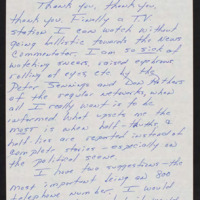 Thank you, thank you,
thank you. Finally a TV
station I can watch without
going ballistic towards the news
commentator. I am so sick of
watching sneers, raised eyebrows,
rolling of eyes etc by the
Peter Jennings and Dan Rathers
of the regular networks, when
all I really want is to be
informed. What upsets me the
most is when half-truths, a
half-lies are reported instead of
complete stories - especially on
the political scene.
I have two suggestions - the
most important being an 800
telephone number. I would